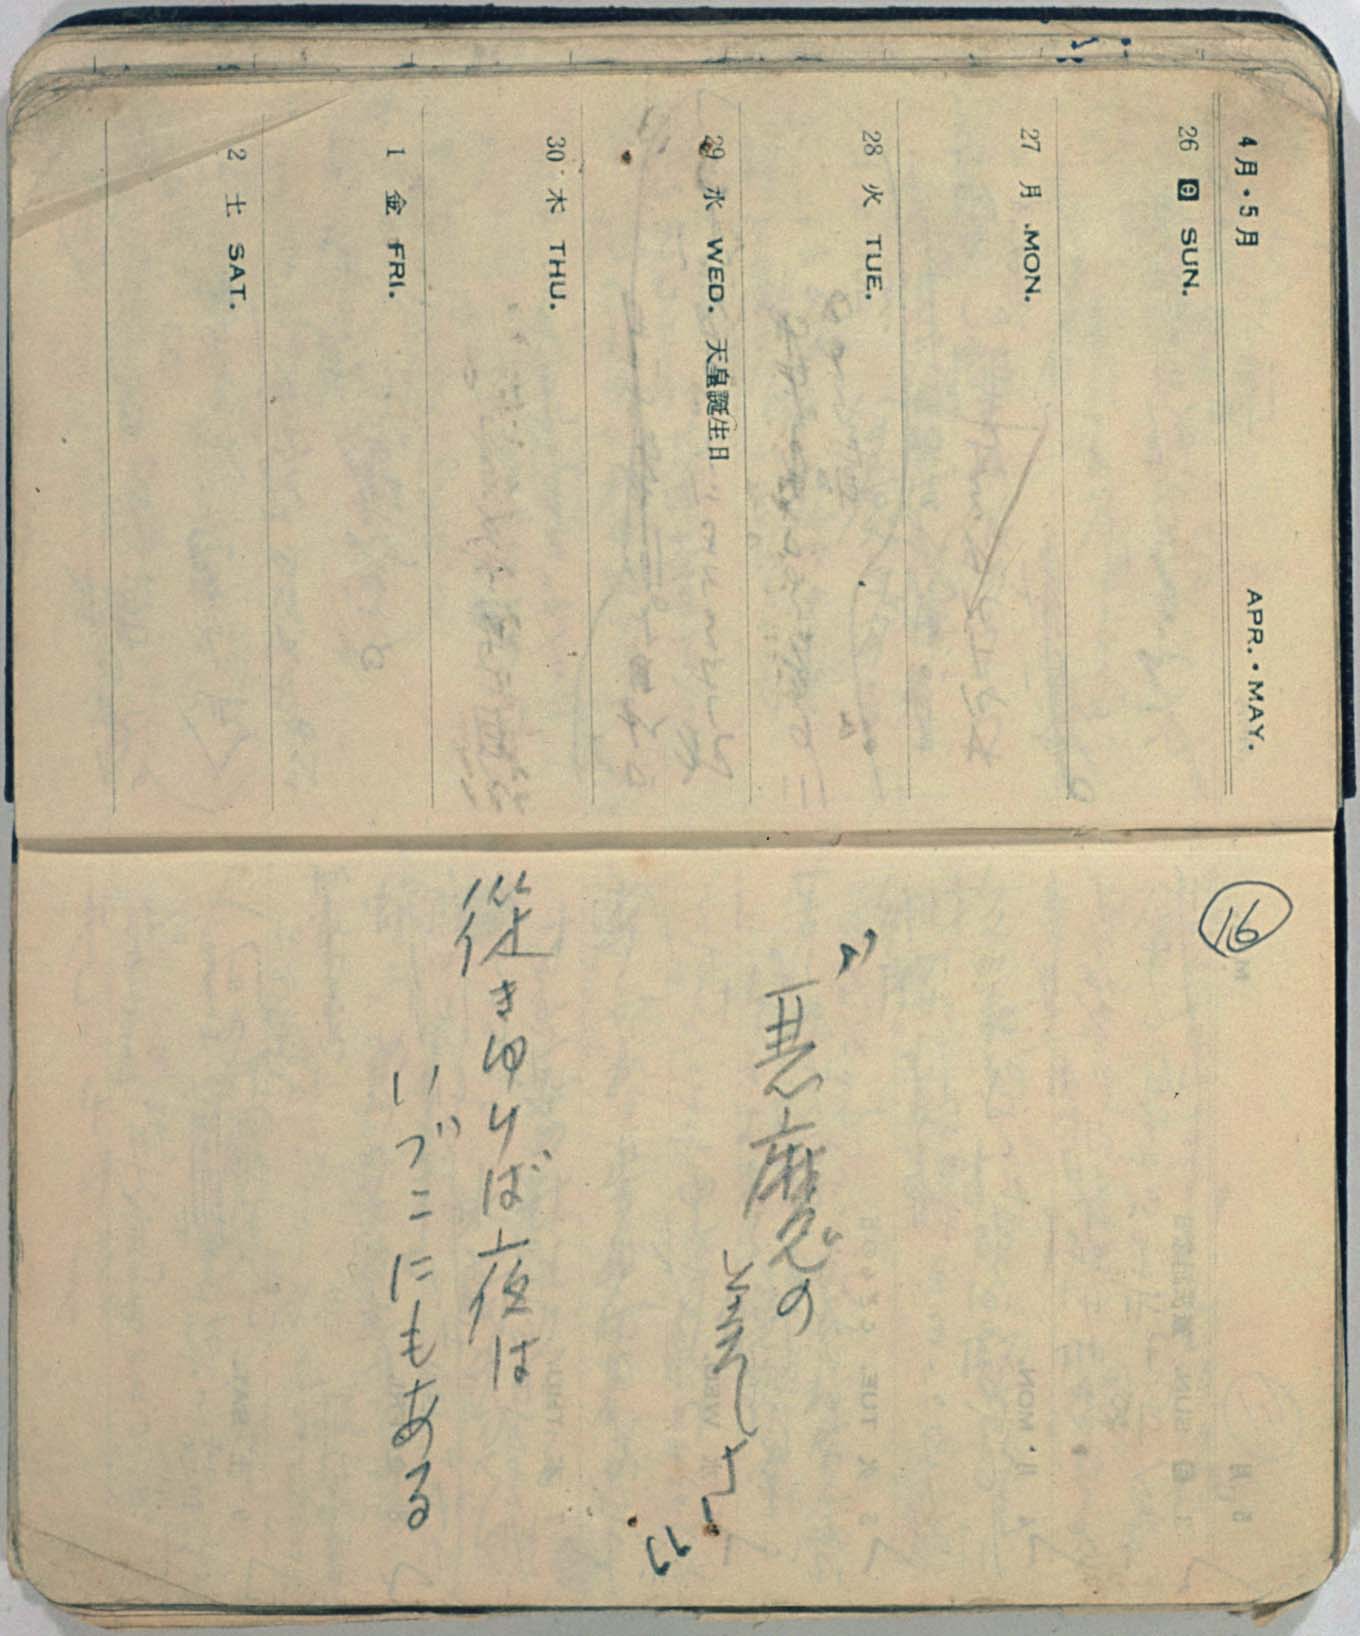 4月・5月 APR.・MAY.
26 日 SUN.
27 月 MON.
28 火 TUE.
29 水 WED. 天皇誕生日
30 木 THU.
1 金 FRI.
2 土 SAT.
16
〝悪魔の
従きゆけば夜は
いづこにもある